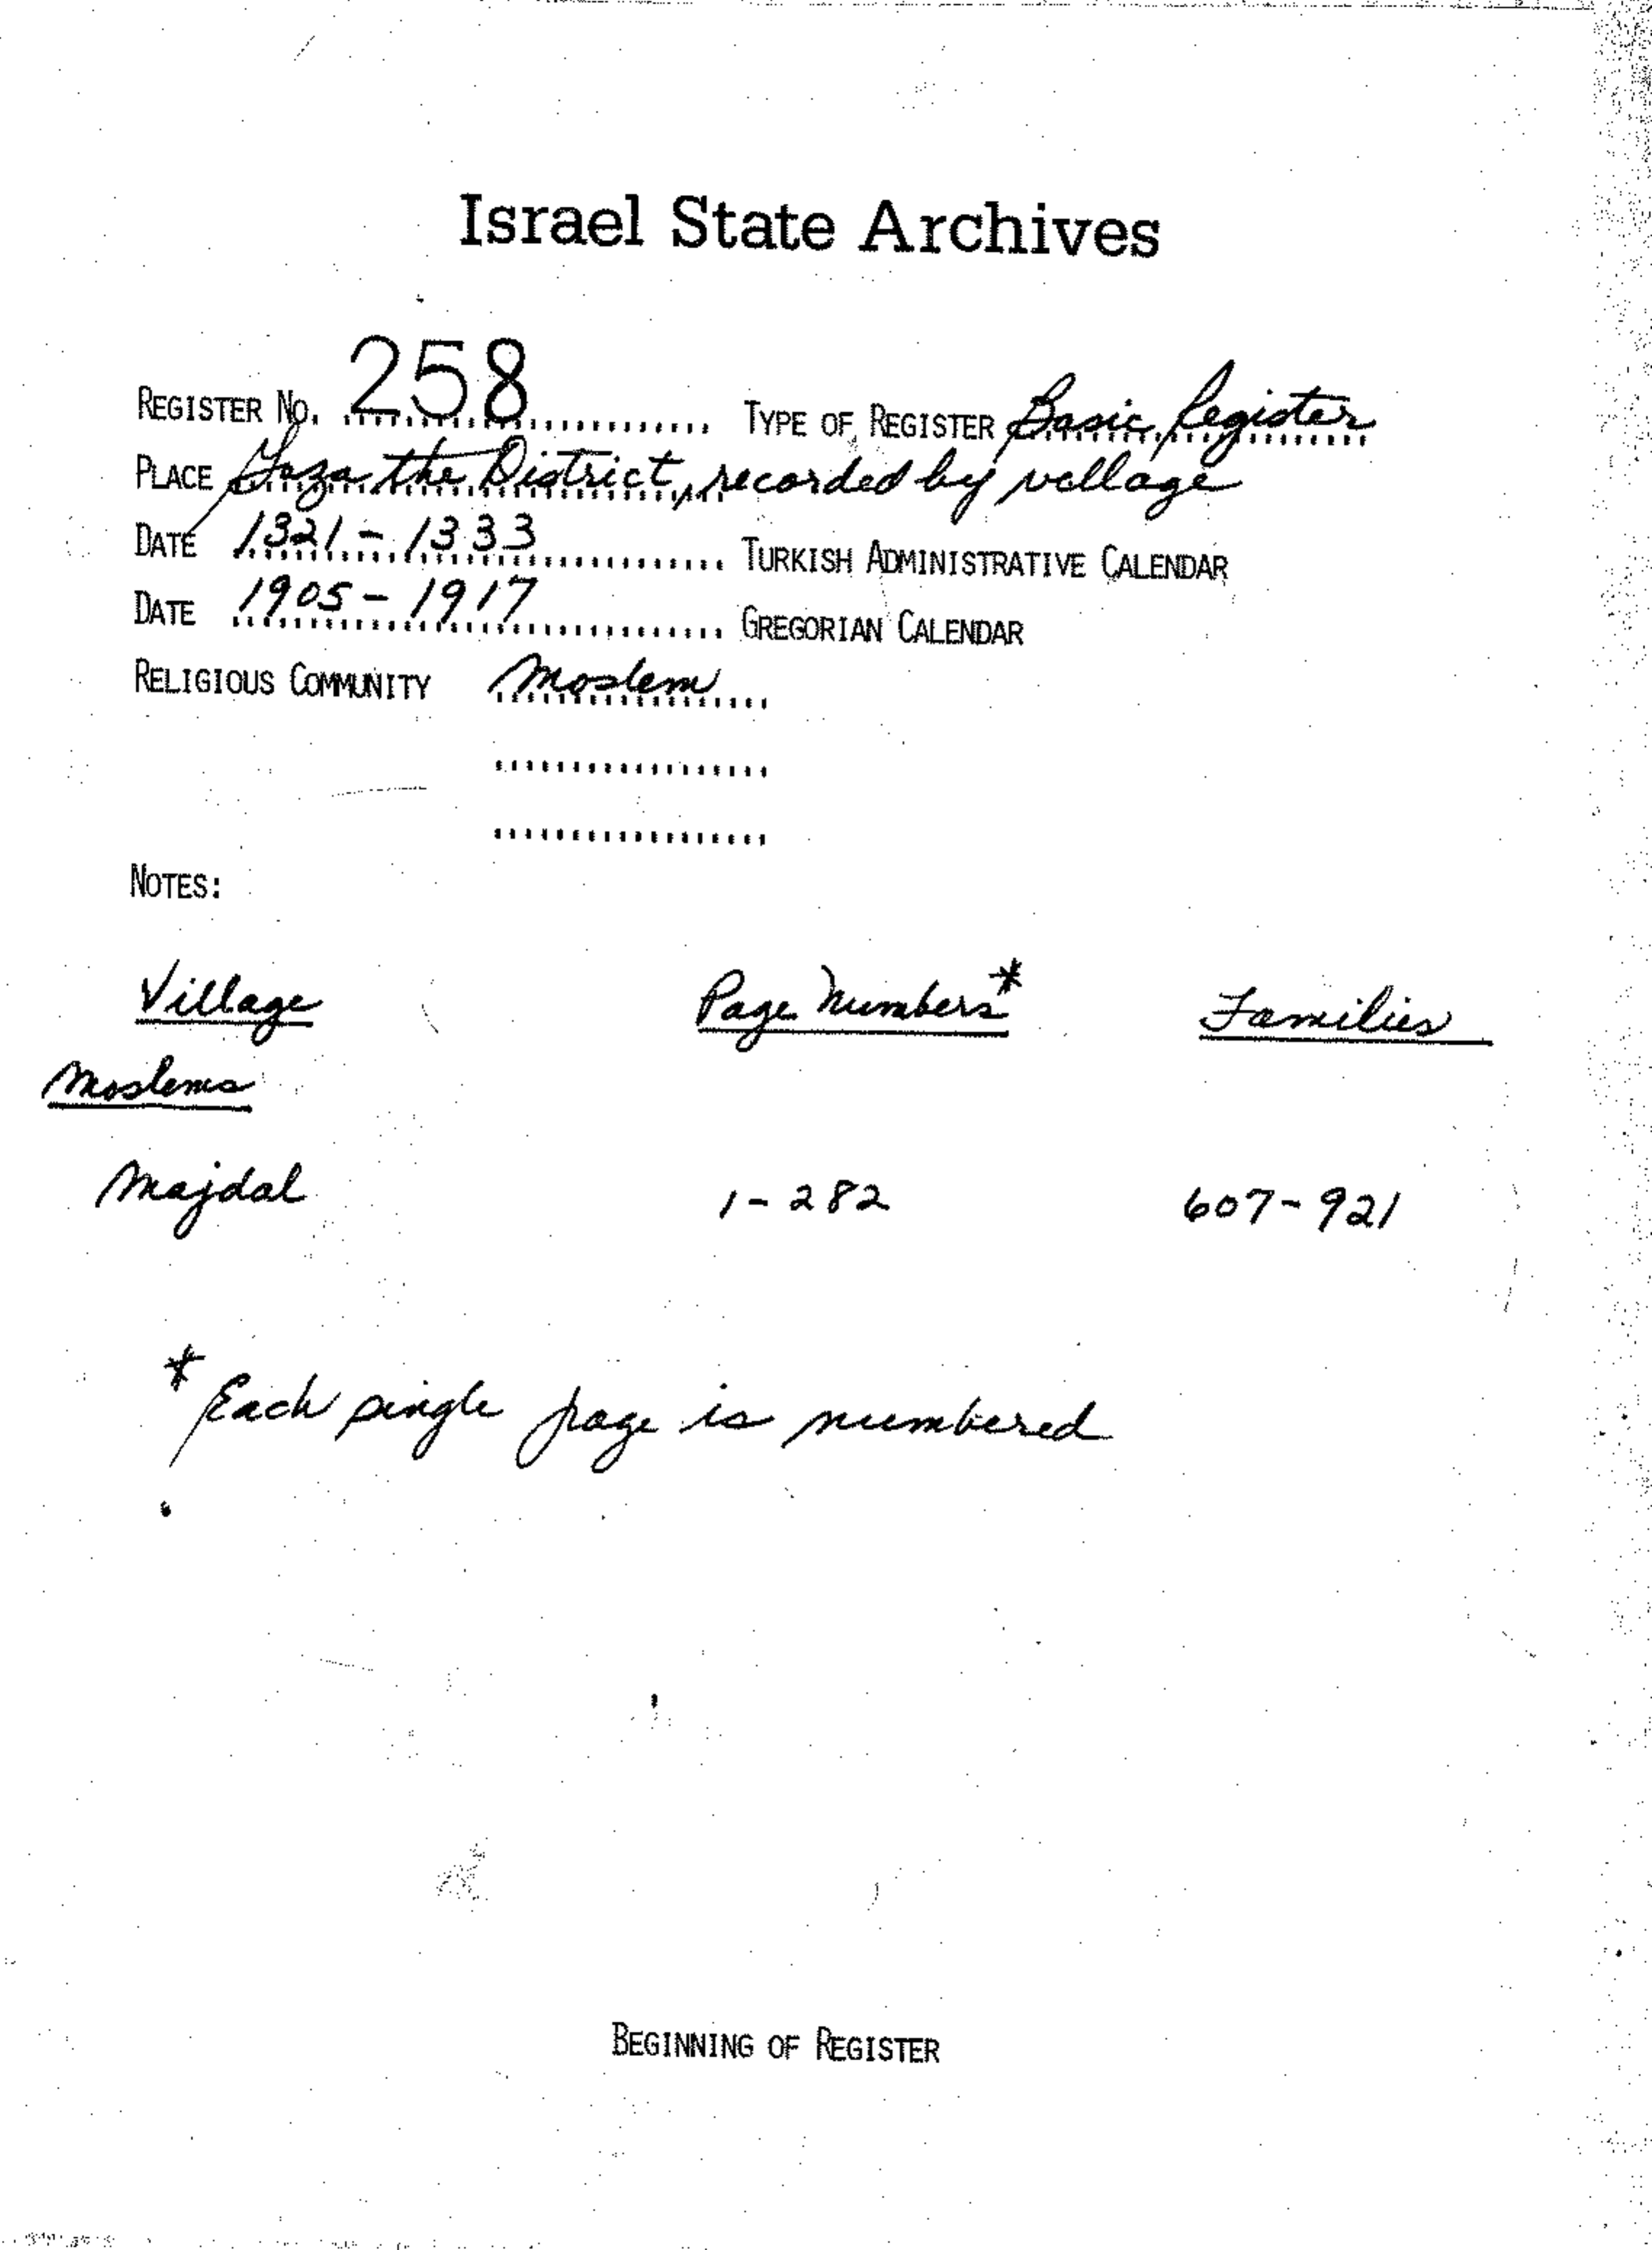 Israel State Archives
REGISTER NO. 258 TYPE OF REGISTER Basic Register
PLACE Gaza the District, recorded by village
DATE 1321 - 1333 TURKISH ADMINISTRATIVE CALENDAR
DATE 1905 - 1917 GREGORIAN CALENDAR
RELIGIOUS COMMUNITY Moslem
NOTES:
Village Page Numbers* Families
Moslems
Majdal 1 - 282 607 - 921
* Each single page is numbered
BEGINNING OF REGISTER